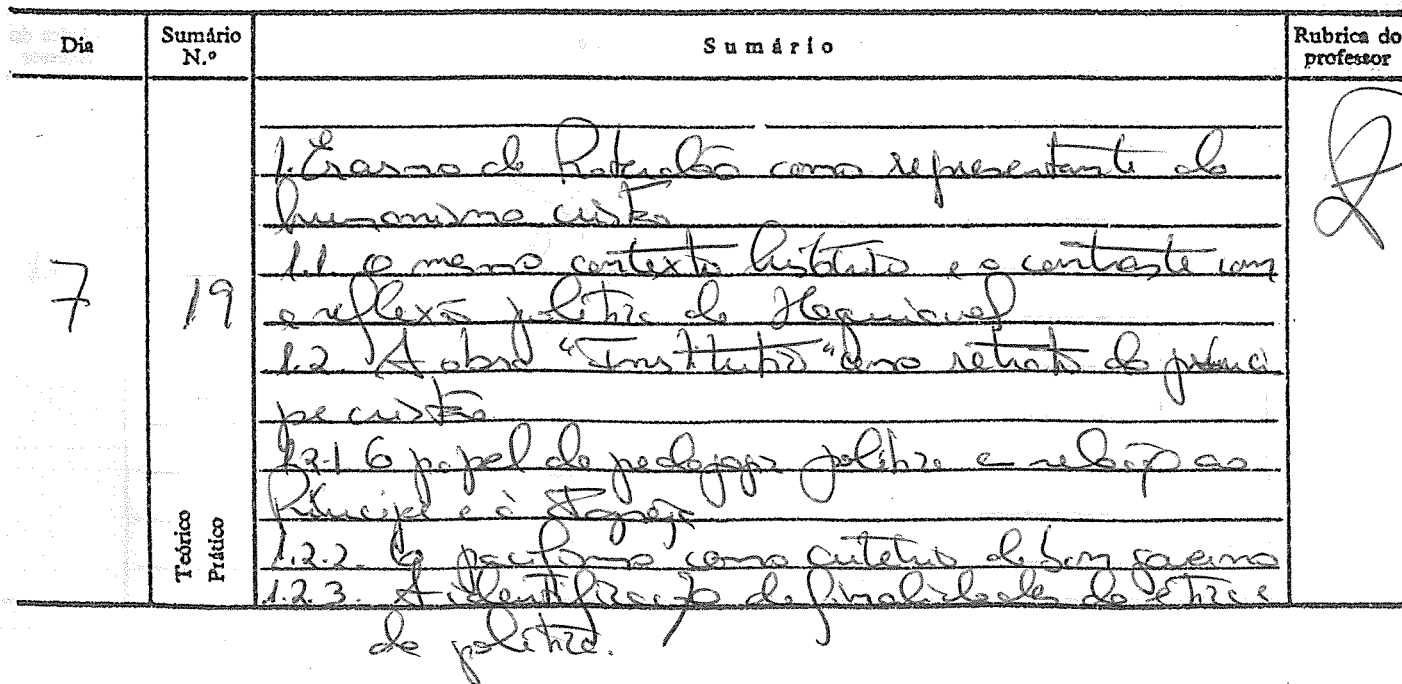 Dia
Sumário N.º
Sumário
Rubrica do professor
7
19
Teórico
Prático
1. Erasmo de Roterdão como representante do
humanismo cristão
1.1. O mesmo contexto histórico e o contraste com
a reflexão política de Maquiavel
1.2. A obra "Institutio" como retrato do prínci
pe cristão
1.2.1 O papel da pedagogia política e relação ao
Príncipe e à Igreja
1.2.2. O pacifismo como critério de bom governo
1.2.3. A identificação de finalidades da ética e
da política.